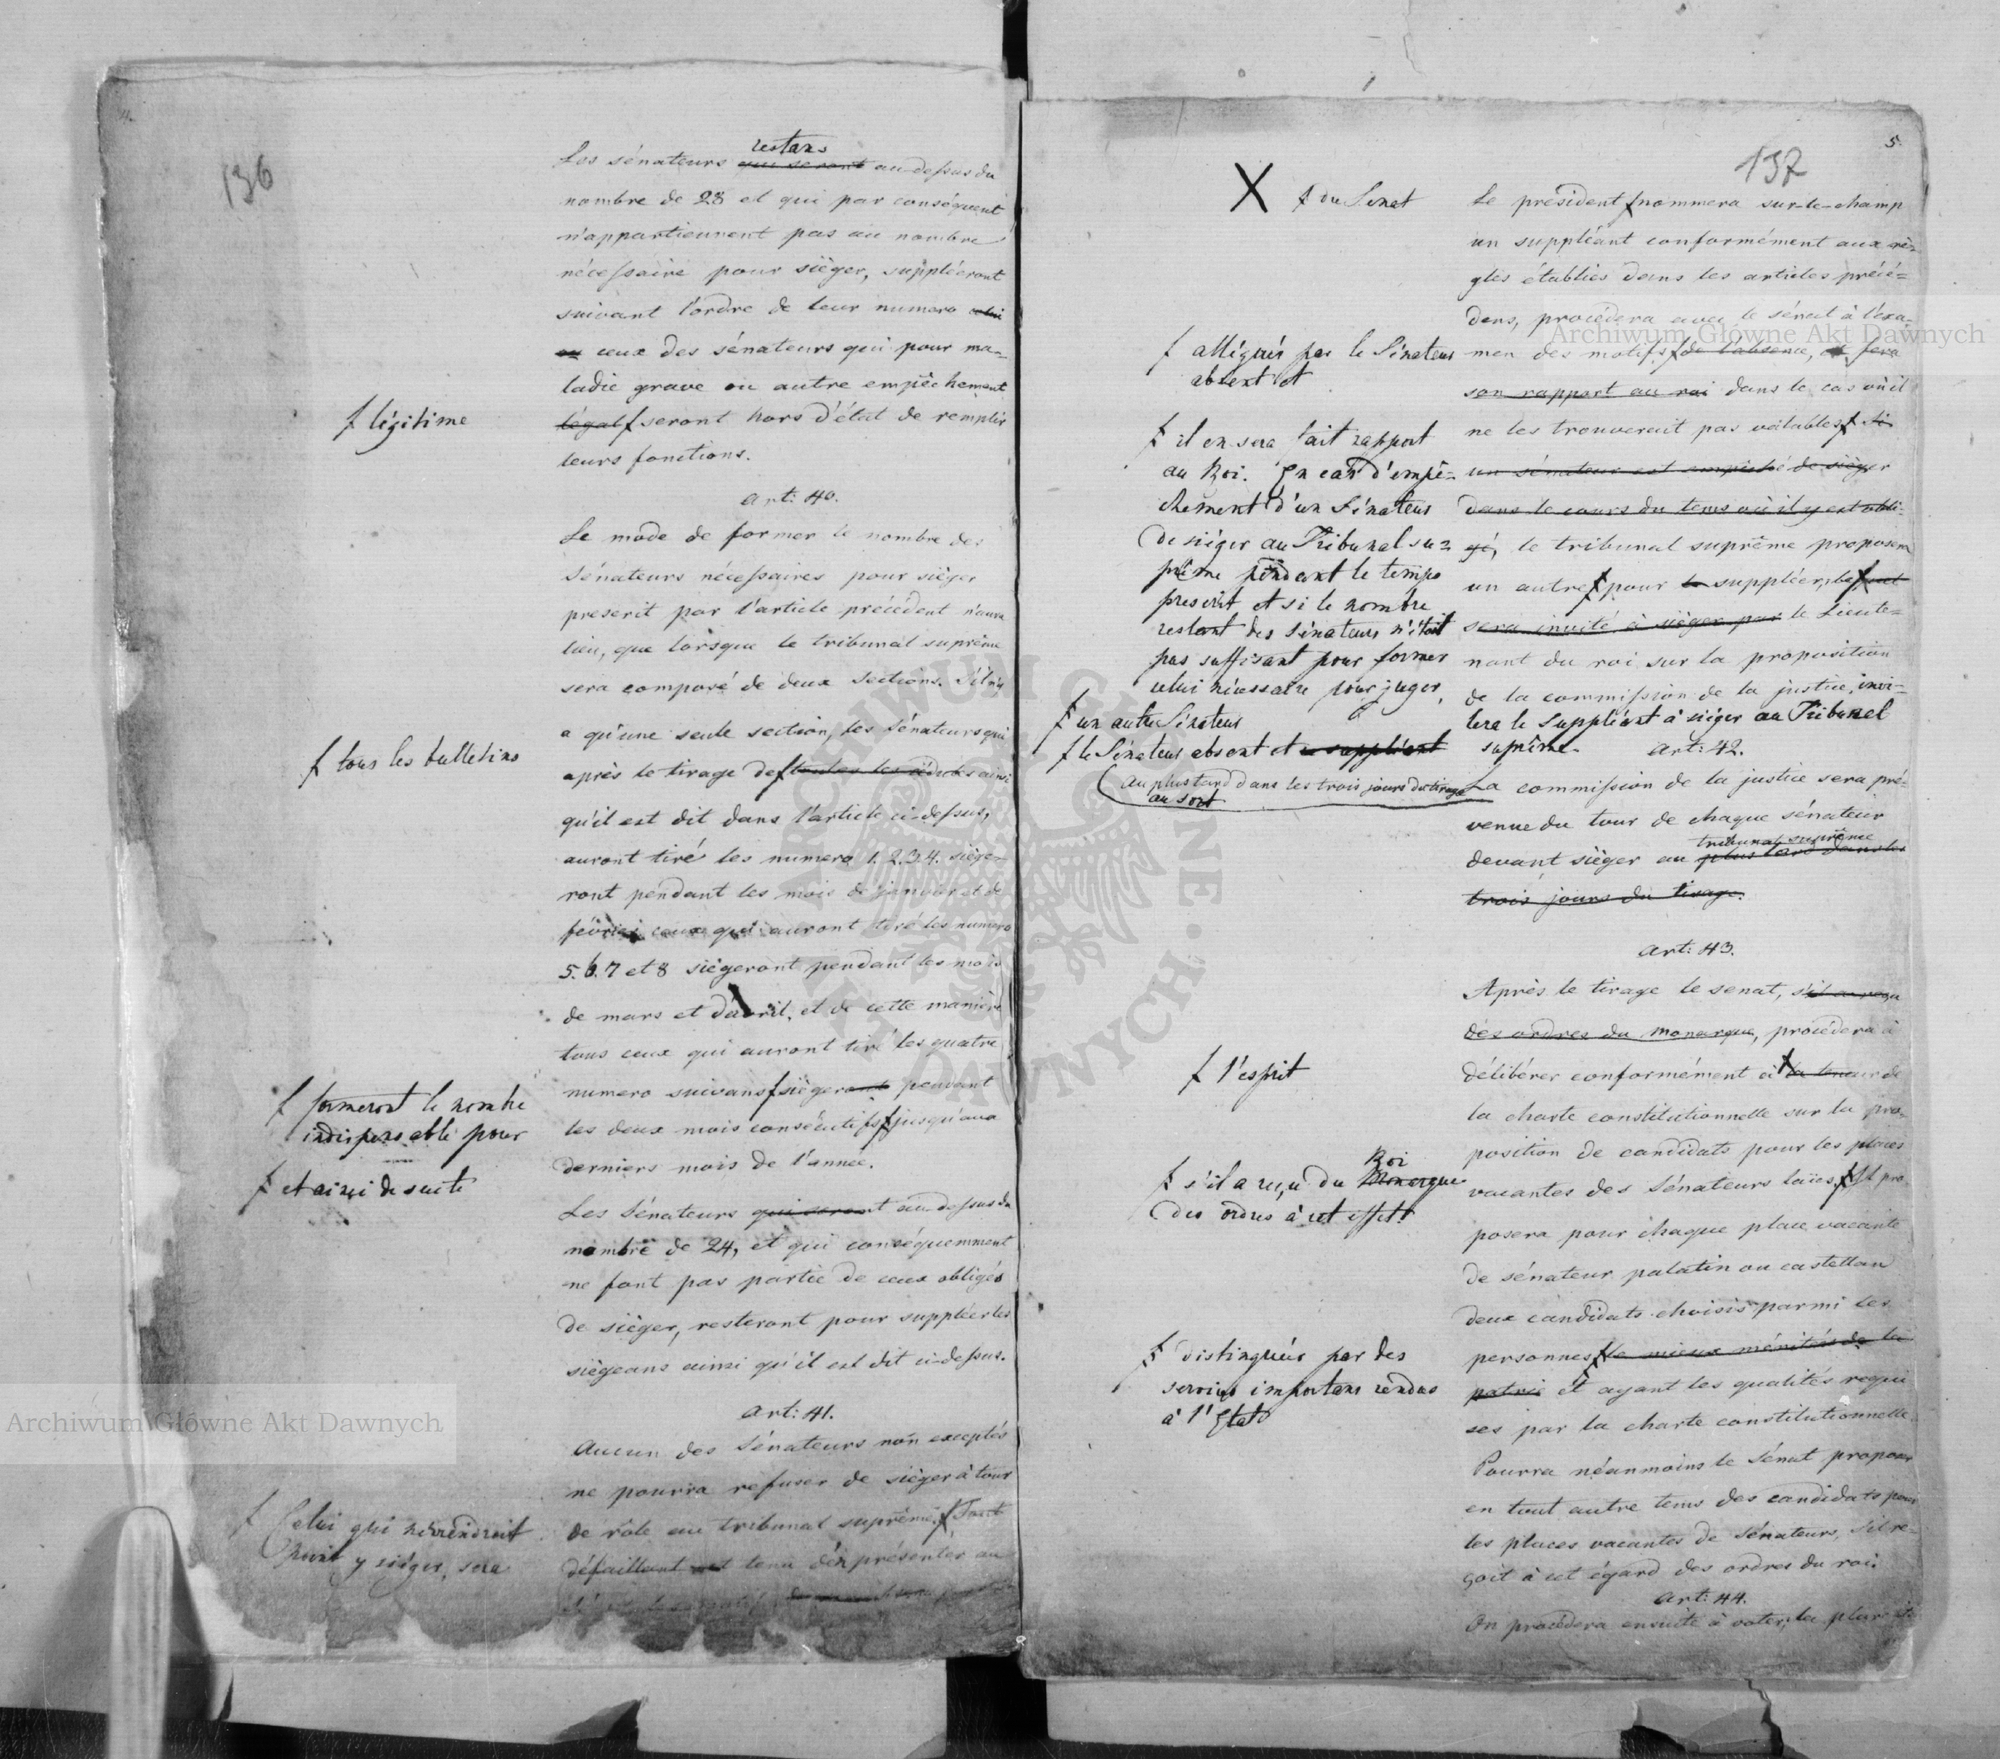 136
restans
Les sénateurs qui seront au-dessus du
nombre de 28 et qui par conséquent
n'appartiennent pas au nombre
nécessaire pour siéger, suppléeront
suivant l'ordre de leur numero celui
ou ceux des sénateurs qui pour ma-
ladie grave ou autre empêchement
légal ƒ seront hors d'état de remplir
leurs fonctions.
ƒ légitime
art: 40.
Le mode de former le nombre des
sénateurs nécessaires pour siéger
prescrit par l'article précédent n'aura
lieu, que lorsque le tribunal suprême
sera composé de deux sections. S'il n'y
a qu'une seule section, les sénateurs qui
après le tirage de ƒ toutes les cédules ainsi
ƒ tous les bulletins
qu'il est dit dans l'article ci-dessus,
auront tiré les numero 1. 2. 3. 4. siége-
ront pendant les mois de janvier et de
février ceux qui auront tiré les numero
5. 6. 7 et 8 siégeront pendant les mois
de mars et d'avril, et de cette manière
tous ceux qui auront tiré les quatre
numero suivans ƒ siégeront pendant
ƒ formeront le nombre
indispensable pour
les deux mois consécutifs ƒ jusqu'aux
derniers mois de l'année.
ƒ et ainsi de suite
Les Sénateurs qui seront au-dessus du
nombre de 24, et qui conséquemment
ne font pas partie de ceux obligés
de siéger, resteront pour suppléer les
siégeans ainsi qu'il est dit ci-dessus.
art: 41.
Aucun des Sénateurs non exceptés
ne pourra refuser de siéger à tour
de rôle au tribunal suprême. ƒ Tout
ƒ Celui qui
y siéger, sera
défaillant est tenu d'en présenter au
5.
137
X ƒ du Sénat
Le président ƒ nommera sur-le-champ
un suppléant conformément aux rè-
gles établies dans les articles précé-
dens, procédera avec le sénat à l'exa-
men des motifs ƒ de l'absence, et fera
ƒ allégués par le Sénateur
absent et
son rapport au roi dans le cas où il
ne les trouverait pas valables ƒ Si
un sénateur est empêché de siéger
dans le cours du tems où il y est obli-
gé, le tribunal suprême proposera
un autre ƒ pour le suppléer, le ƒ
sera invité à siéger par le Lieute-
nant du roi sur la proposition
de la commission de la justice, invi-
tera le suppléant à siéger au Tribunal
suprême.
ƒ il en sera fait rapport
au Roi. En cas d'empê-
chement d'un Sénateur
de siéger au Tribunal su-
prême pendant le temps
prescrit et si le nombre
restant des sénateurs n'était
pas suffisant pour former
celui nécessaire pour juger,
ƒ un autre Sénateur
ƒ le Sénateur absent et le suppléant
au plus tard dans les trois jours du tirage
au sort
art: 42.
La commission de la justice sera pré-
venue du tour de chaque sénateur
tribunal suprême
devant siéger au plus tard dans les
trois jours du tirage.
art: 43.
Après le tirage le senat, s'il a reçu
des ordres du monarque, procédera à
délibérer conformément à ƒ la teneur de
ƒ l'esprit
la charte constitutionnelle sur la pro-
position de candidats pour les places
vacantes des Sénateurs laïcs, ƒ Il pro-
Roi
ƒ s'il a reçu du Monarque
des ordres à cet effet.
posera pour chaque place vacante
de sénateur palatin ou castellan
deux candidats choisis parmi les
personnes ƒ le mieux méritées de la
patrie et ayant les qualités requi-
ƒ distinguées par des
services importans rendus
à l'Etat
ses par la charte constitutionnelle.
Pourra néanmoins le Sénat proposer
en tout autre tems des candidats pour
les places vacantes de Sénateurs, s'il re-
çoit à cet égard des ordres du roi.
art: 44.
On procédera ensuite à voter, la plur
Archiwum Główne Akt Dawnych
Archiwum Główne Akt Dawnych
ARCHIWUM GŁÓWNE AKT DAWNYCH